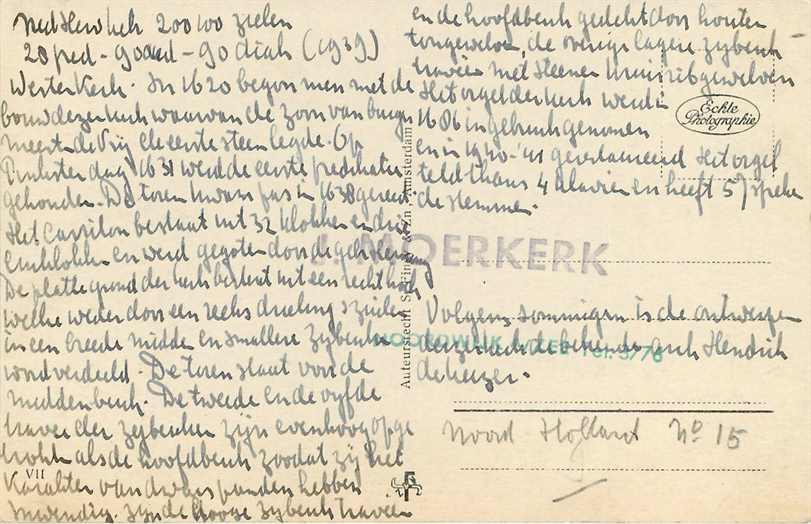 Ned Herv kerk 200 000 zielen
28 pred - 90 oud - 90 diak (1939)
Westerkerk. In 1620 begon men met de
bouw dezer kerk waarvan de zoon van burge
meester de Vrij de eerste steen legde. Op
Pinksterdag 1631 werd de eerste predikatie
gehouden. De toren kwam pas in 1638 gereed.
Het Carrillon bestaat uit 32 klokken en drie
luiklokken en werd gegoten door de gebr Hemony
De platte grond der kerk bestaat uit een rechthoek
welke weder door een reeks drieling zuilen
in een breede midden en smallere zybeuken
word verdeeld. De toren staat voor de
middenbeuk. De tweede en de vyfde
travee der zybeuken zijn even hoog opge
trokken als de hoofdbeuk zoodat zij het
Karakter van dwars panden hebben
Inwendig zijn de hooge zybeuk traveeën
en de hoofdbeuk gedekt door houten
tongewelven, de overige lagere zybeuk
traveeën met steenen kruisribgewelven
Het orgel der kerk werd in
1686 in gebruik genomen
en in 1940-'41 gerestaureerd Het orgel
telt thans 4 klavieren en heeft 57 spreken
de stemmen.
Echte
Photographie
J. MOERKERK
NOORDWIJK A/ZEE Tel. 3776
Volgens sommigen is de ontwerper
dezer kerk de bekende arch Hendrik
de keyzer.
Noord Holland No 15
Auteursrecht S. & Zn. Amsterdam
VII